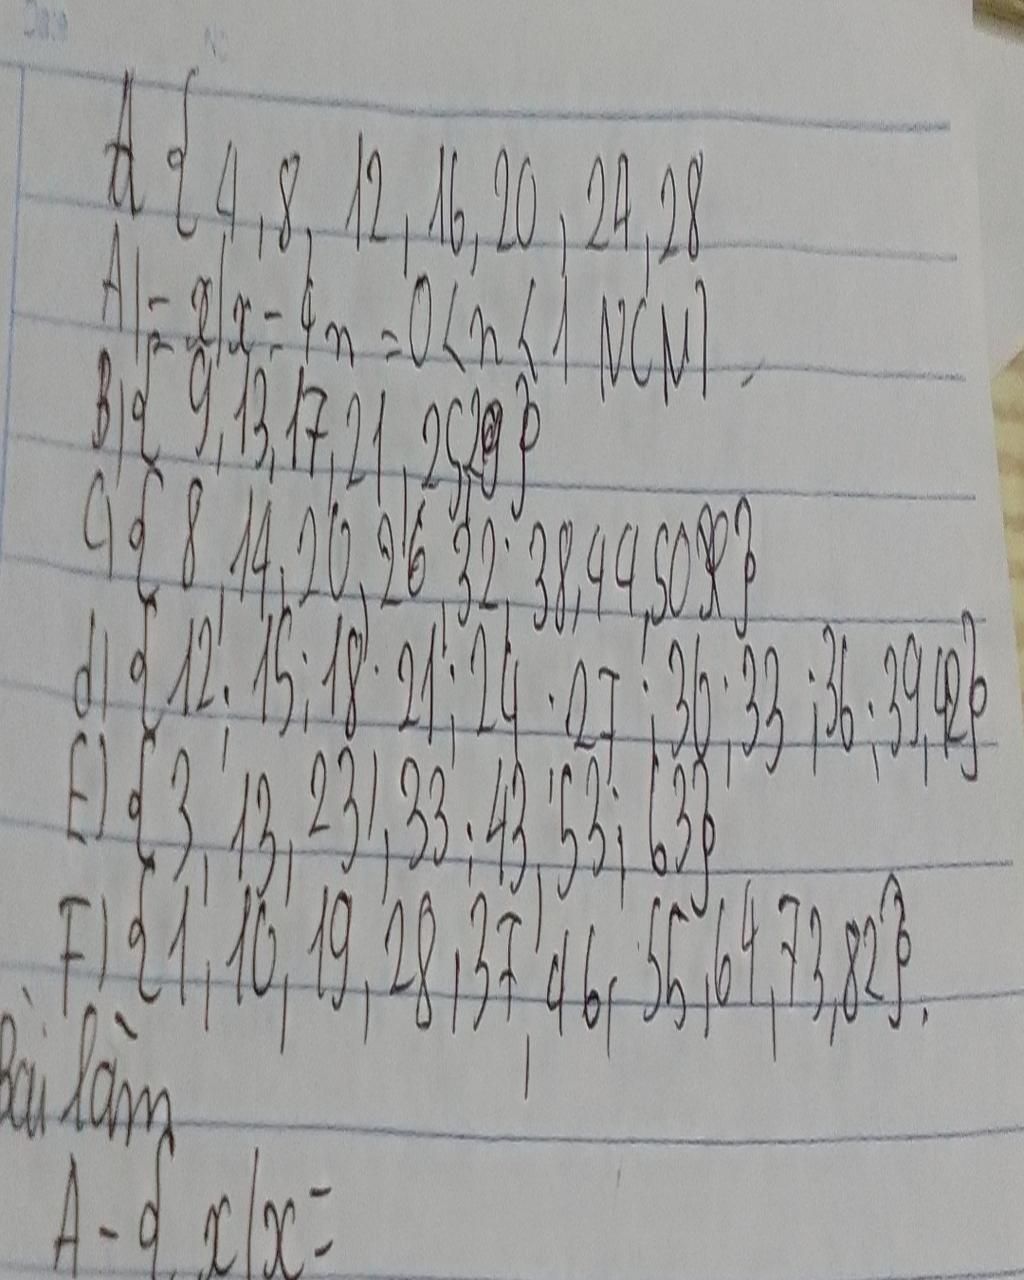 A { 4, 8, 12, 16, 20, 24, 28
A) = x/x = 4n = 0 < n < 1 N( N)
B) { 9, 13, 17, 21, 25, 29 }
C) { 8, 14, 20, 26, 32, 38, 44, 50 }
d) { 12; 15; 18; 21; 24; 27; 30; 33; 36; 39, 42 }
E) { 3, 13, 23, 33; 43, 53; 63 }
F) { 1, 10, 19, 28, 37, 46, 55, 64, 73, 82 }.
Bài làm
A - { x/x =